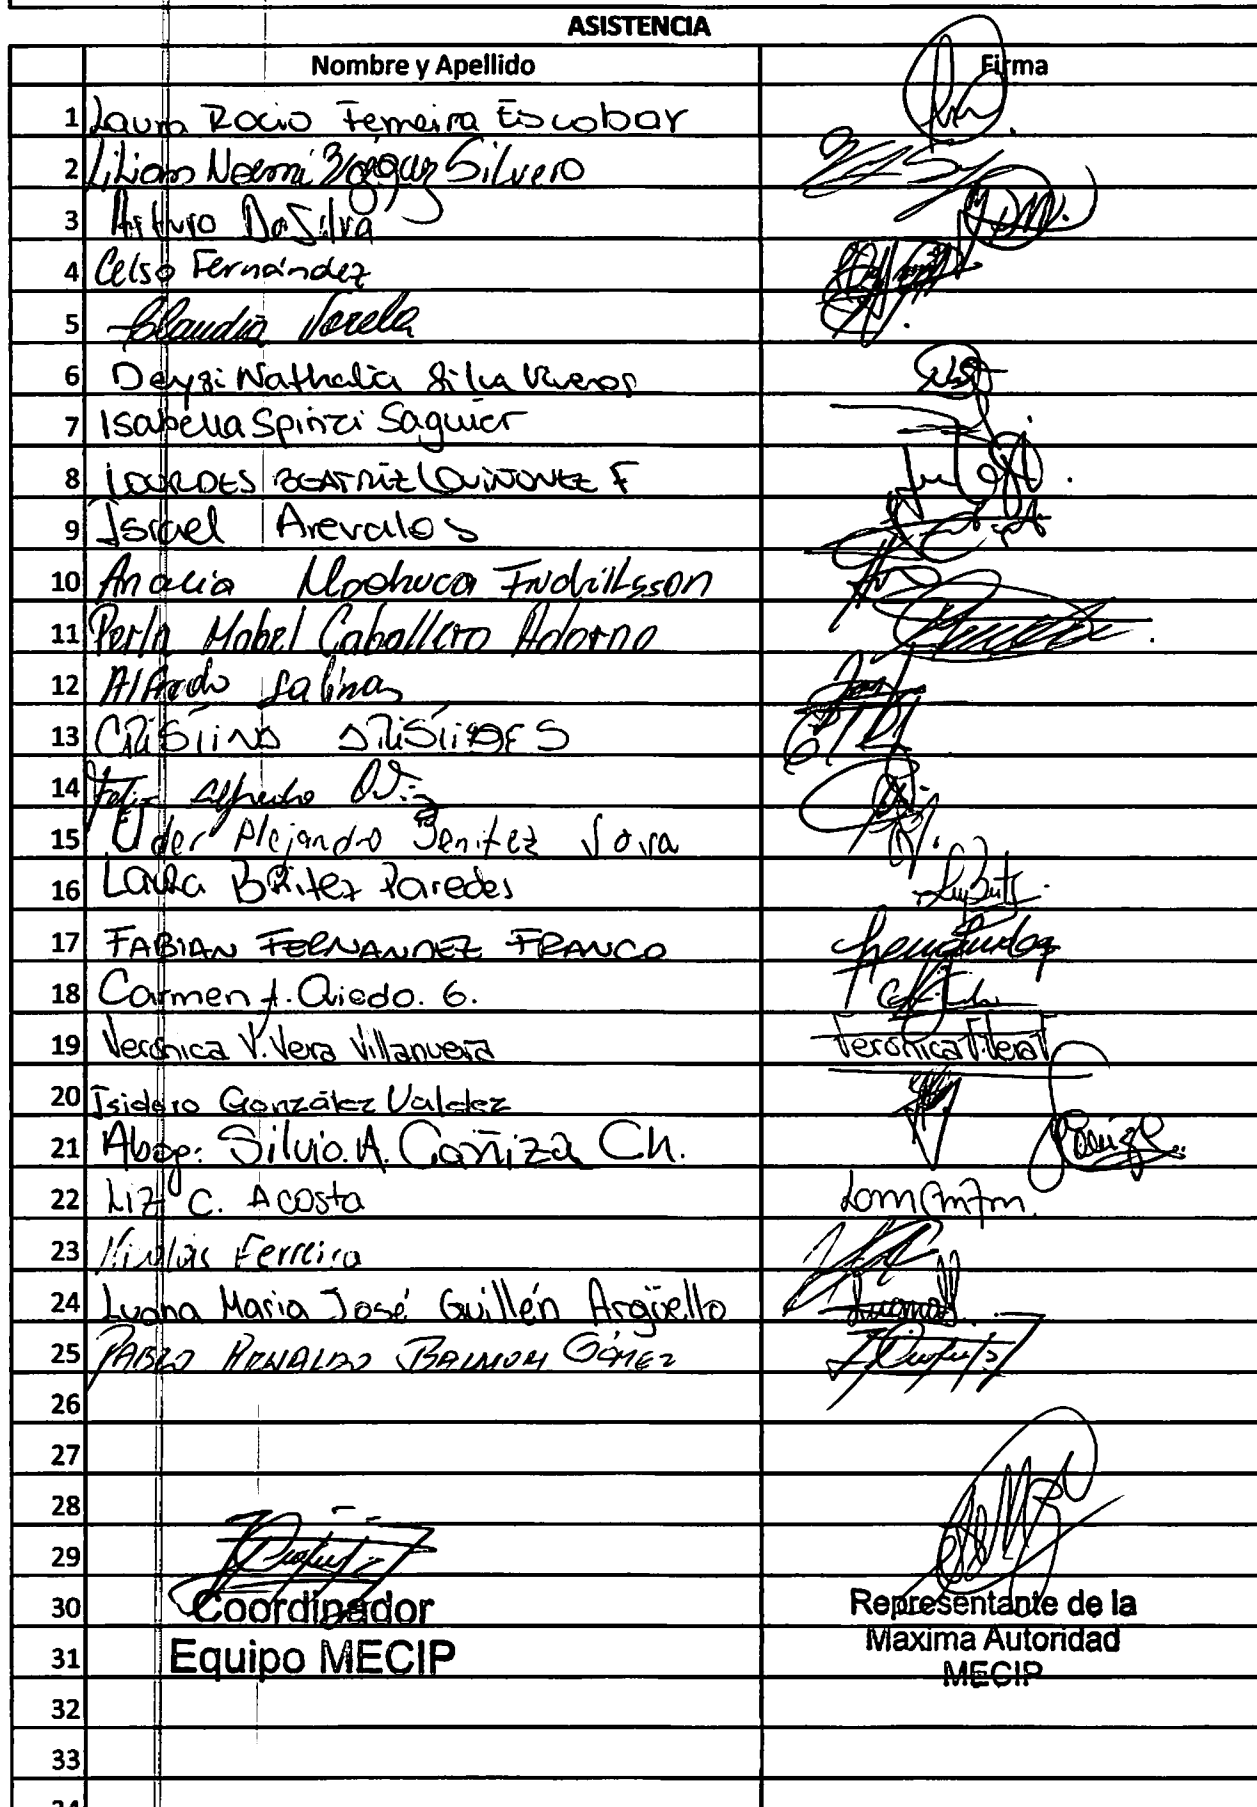 ASISTENCIA
Nombre y Apellido Firma
1 Laura Rocio Ferreira Escobar
2 Lilian Noemi Silvero
3 Arturo Da Silva
4 Celso Fernández
5 Claudia Varela
6 Deysi Nathalia Silva Riveros
7 Isabella Spinzi Saguier
8 LOURDES BEATRIZ QUIÑONEZ F
9 Israel Arevalos
10 Analia Machuca
11 Perla Mabel Caballero Adorno
12 Alfredo Salinas
13 CRISTINO
14 Felix Alfredo
15 Elder Alejandro Benitez
16 Laura Britez Paredes
17 FABIAN FERNANDEZ FRANCO
18 Carmen A. Oviedo. G.
19 Verónica V. Vera Villanueva Veronica
20 Isidoro González Valdez
21 Abog: Silvio. A. Cañiza Ch.
22 Liz C. Acosta
23 Nicolás Ferreira
24 Luana Maria José Guillén Argüello
25 PABLO GÓMEZ
26
27
28
29
30 Coordinador Representante de la
31 Equipo MECIP Maxima Autoridad
MECIP
32
33
34